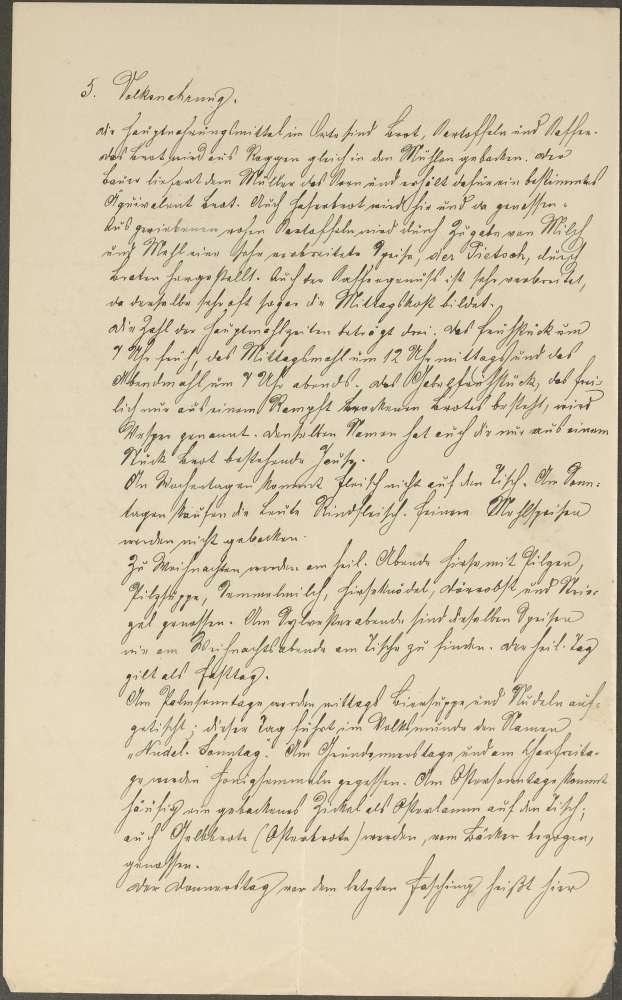 5. Volksnahrung.
Die Hauptnahrungsmittel im Orte sind Brot, Kartoffeln und Kaffee.
Das Brot wird aus Roggen gleich in den Mühlen gebacken. Der
Bauer liefert dem Müller das Korn und erhält dafür ein bestimmtes
Äquivalent Brot. Auch Haferbrot wird hie und da genossen.
Aus geriebenen rohen Kartoffeln wird durch Zugabe von Milch
und Mehl eine sehr verbreitete Speise, der Pietsch, durch
Braten hergestellt. Auch der Kaffeegenuß ist sehr verbreitet,
da derselbe sehr oft sogar die Mittagskost bildet.
Die Zahl der Hauptmahlzeiten beträgt drei. Das Frühstück um
7 Uhr früh, das Mittagsmahl um 12 Uhr mittags und das
Abendmahl um 7 Uhr abends. Das Gabelfrühstück, das frei-
lich nur aus einem Rampft trockenen Brotes besteht, wird
Vesper genannt. Denselben Namen hat auch die nur aus einem
Stück Brot bestehende Jause.
An Wochentagen kommt Fleisch nicht auf den Tisch. An Sonn-
tagen kaufen die Leute Rindfleisch. Feinere Mehlspeisen
werden nicht gebacken.
Zu Weihnachten werden am heil. Abende Hirse mit Pilzen,
Pilzsuppe, Semmelmilch, Hirseknödel, Dörrobst und Strie-
zel genossen. Am Sylvesterabende sind dieselben Speisen
wie am Weihnachtsabende am Tische zu finden. Der heil. Tag
gilt als Fasttag.
Am Palmsonntage werden mittags Biersuppe und Nudeln auf-
getischt; dieser Tag führt im Volksmunde den Namen
„Nudel-Sonntag". Am Gründonnerstage und am Charfreita-
ge werden Honigsemmeln gegessen. Am Ostersonntage kommt
häufig ein gebackenes Zickel als Osterlamm auf den Tisch;
auch Gelbbrote (Osterbrote) werden, vom Bäcker bezogen,
genossen.
Der Donnerstag vor dem letzten Fasching heißt hier